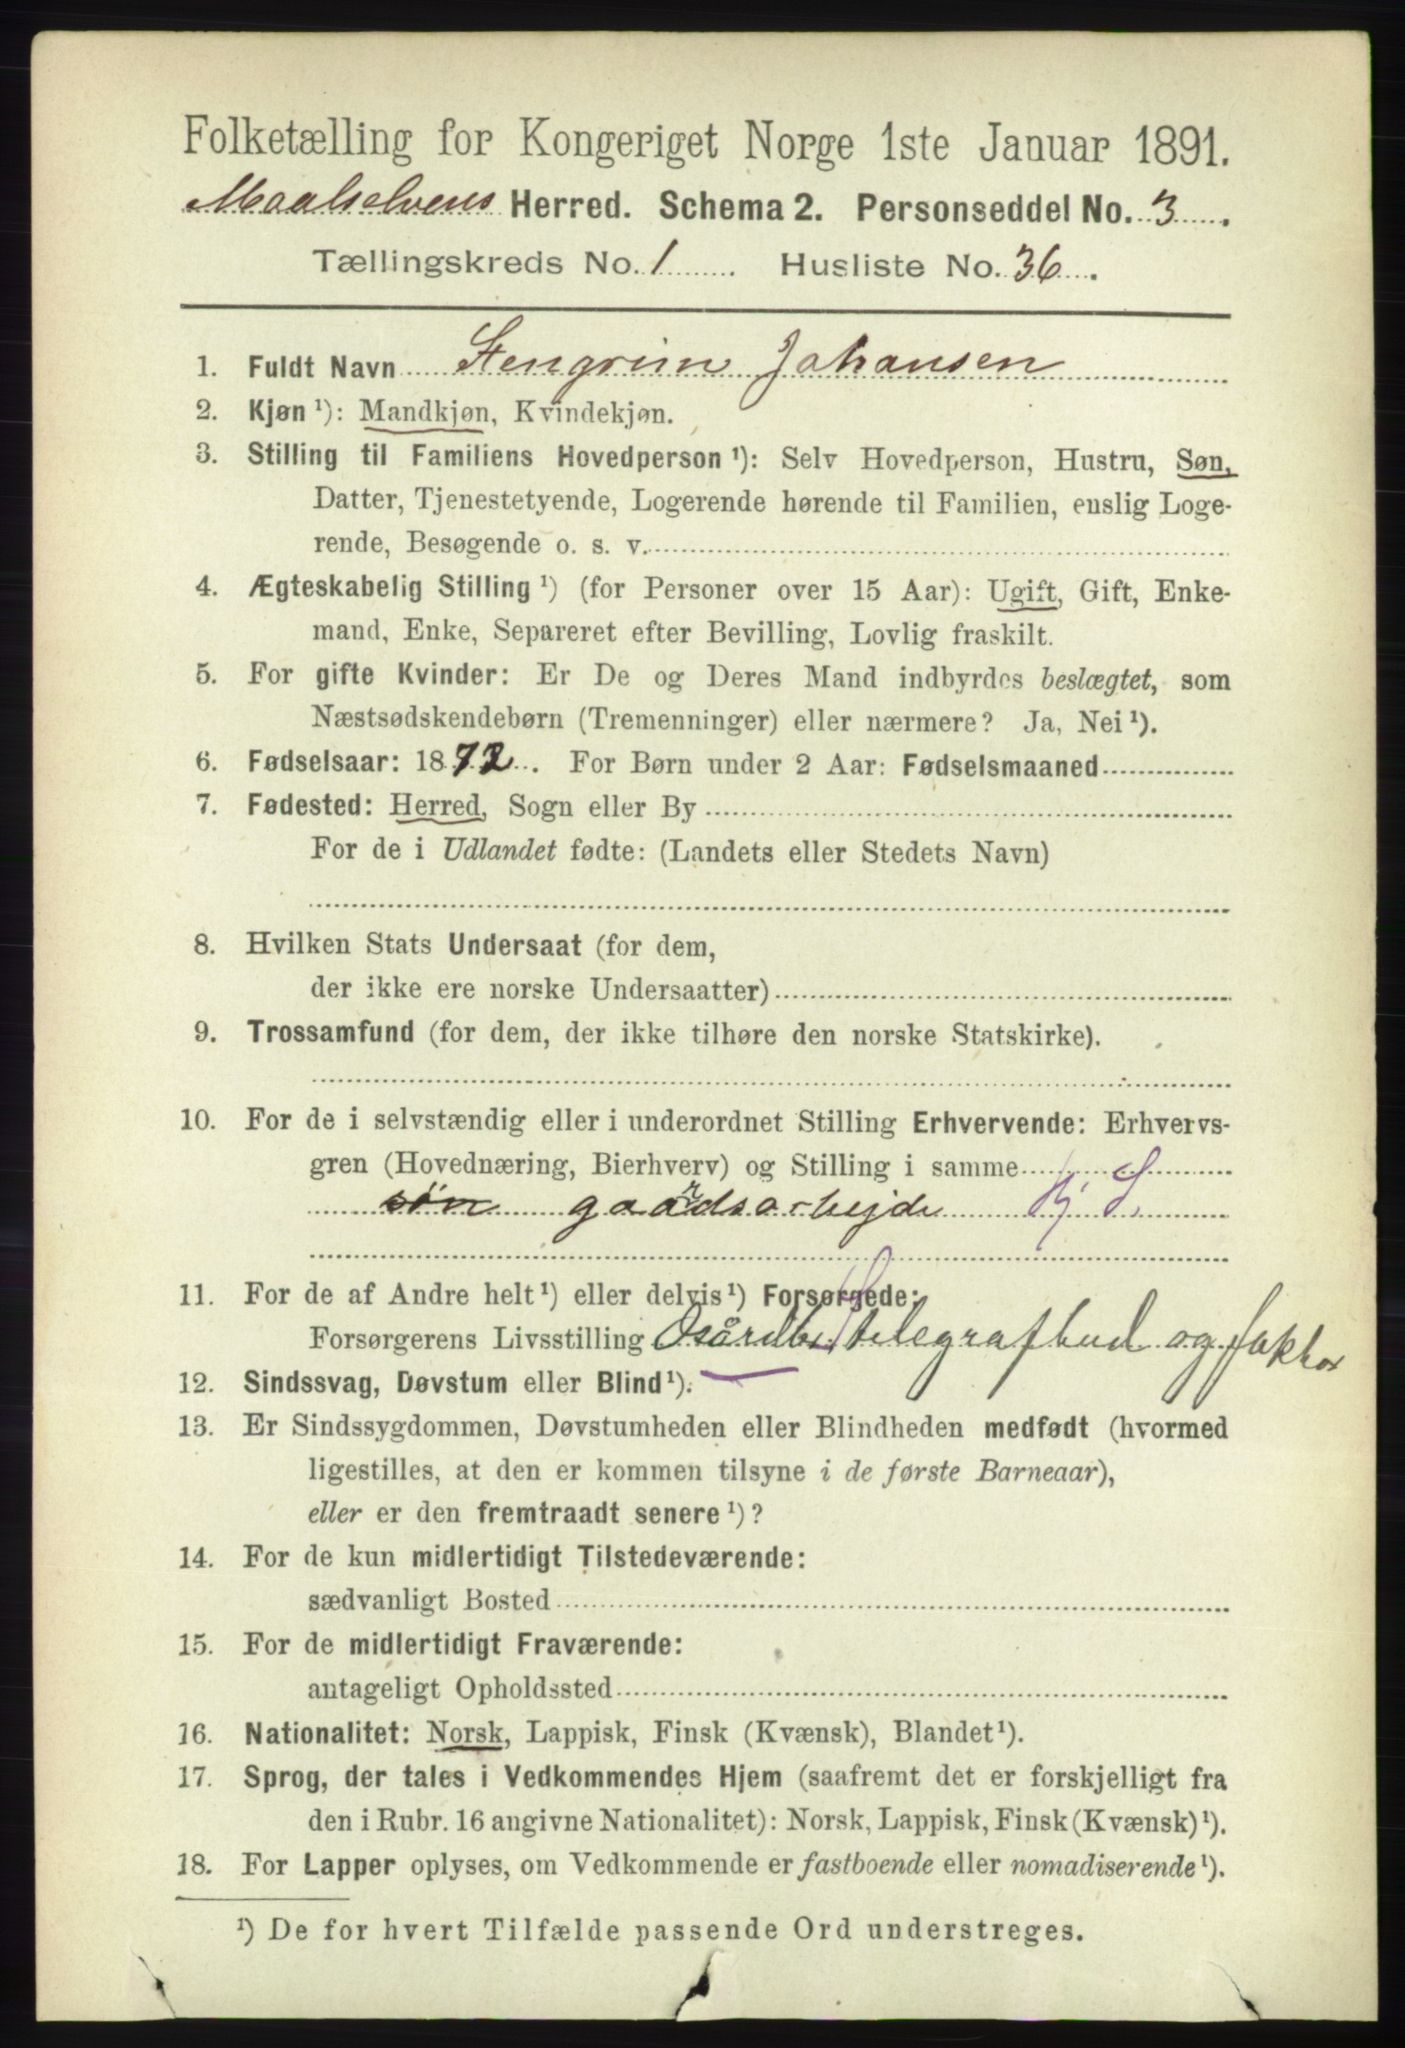 Folketælling for Kongeriget Norge 1ste Januar 1891.
Maalselvens Herred. Schema 2. Personseddel No. 3.
Tællingskreds No. 1 Husliste No. 36.
1. Fuldt Navn Stengrim Johansen
2. Kjøn ¹): Mandkjøn, Kvindekjøn.
3. Stilling til Familiens Hovedperson ¹): Selv Hovedperson, Hustru, Søn,
Datter, Tjenestetyende, Logerende hørende til Familien, enslig Loge-
rende, Besøgende o. s. v.
4. Ægteskabelig Stilling ¹) (for Personer over 15 Aar): Ugift, Gift, Enke-
mand, Enke, Separeret efter Bevilling, Lovlig fraskilt.
5. For gifte Kvinder: Er De og Deres Mand indbyrdes beslægtet, som
Næstsødskendebørn (Tremenninger) eller nærmere? Ja, Nei ¹).
6. Fødselsaar: 1872. For Børn under 2 Aar: Fødselsmaaned
7. Fødested: Herred, Sogn eller By
For de i Udlandet fødte: (Landets eller Stedets Navn)
8. Hvilken Stats Undersaat (for dem,
der ikke ere norske Undersaatter)
9. Trossamfund (for dem, der ikke tilhøre den norske Statskirke).
10. For de i selvstændig eller i underordnet Stilling Erhvervende: Erhvervs-
gren (Hovednæring, Bierhverv) og Stilling i samme
søn gaardsarbejde
11. For de af Andre helt ¹) eller delvis ¹) Forsørgede:
Forsørgerens Livsstilling telegrafbud og
12. Sindssvag, Døvstum eller Blind ¹).
13. Er Sindssygdommen, Døvstumheden eller Blindheden medfødt (hvormed
ligestilles, at den er kommen tilsyne i de første Barneaar),
eller er den fremtraadt senere ¹)?
14. For de kun midlertidigt Tilstedeværende:
sædvanligt Bosted
15. For de midlertidigt Fraværende:
antageligt Opholdssted
16. Nationalitet: Norsk, Lappisk, Finsk (Kvænsk), Blandet ¹).
17. Sprog, der tales i Vedkommendes Hjem (saafremt det er forskjelligt fra
den i Rubr. 16 angivne Nationalitet): Norsk, Lappisk, Finsk (Kvænsk) ¹).
18. For Lapper oplyses, om Vedkommende er fastboende eller nomadiserende ¹).
¹) De for hvert Tilfælde passende Ord understreges.